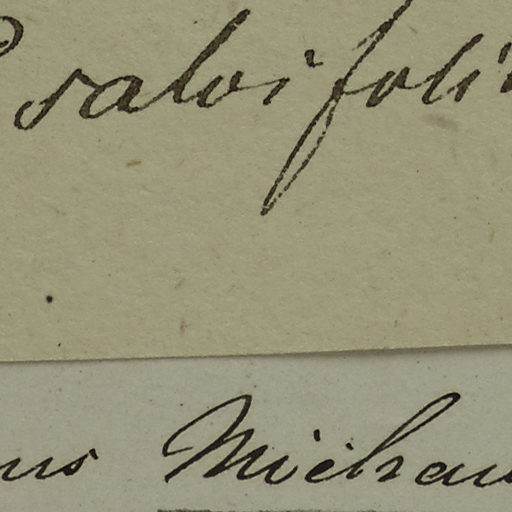 salvifoli
us Michau